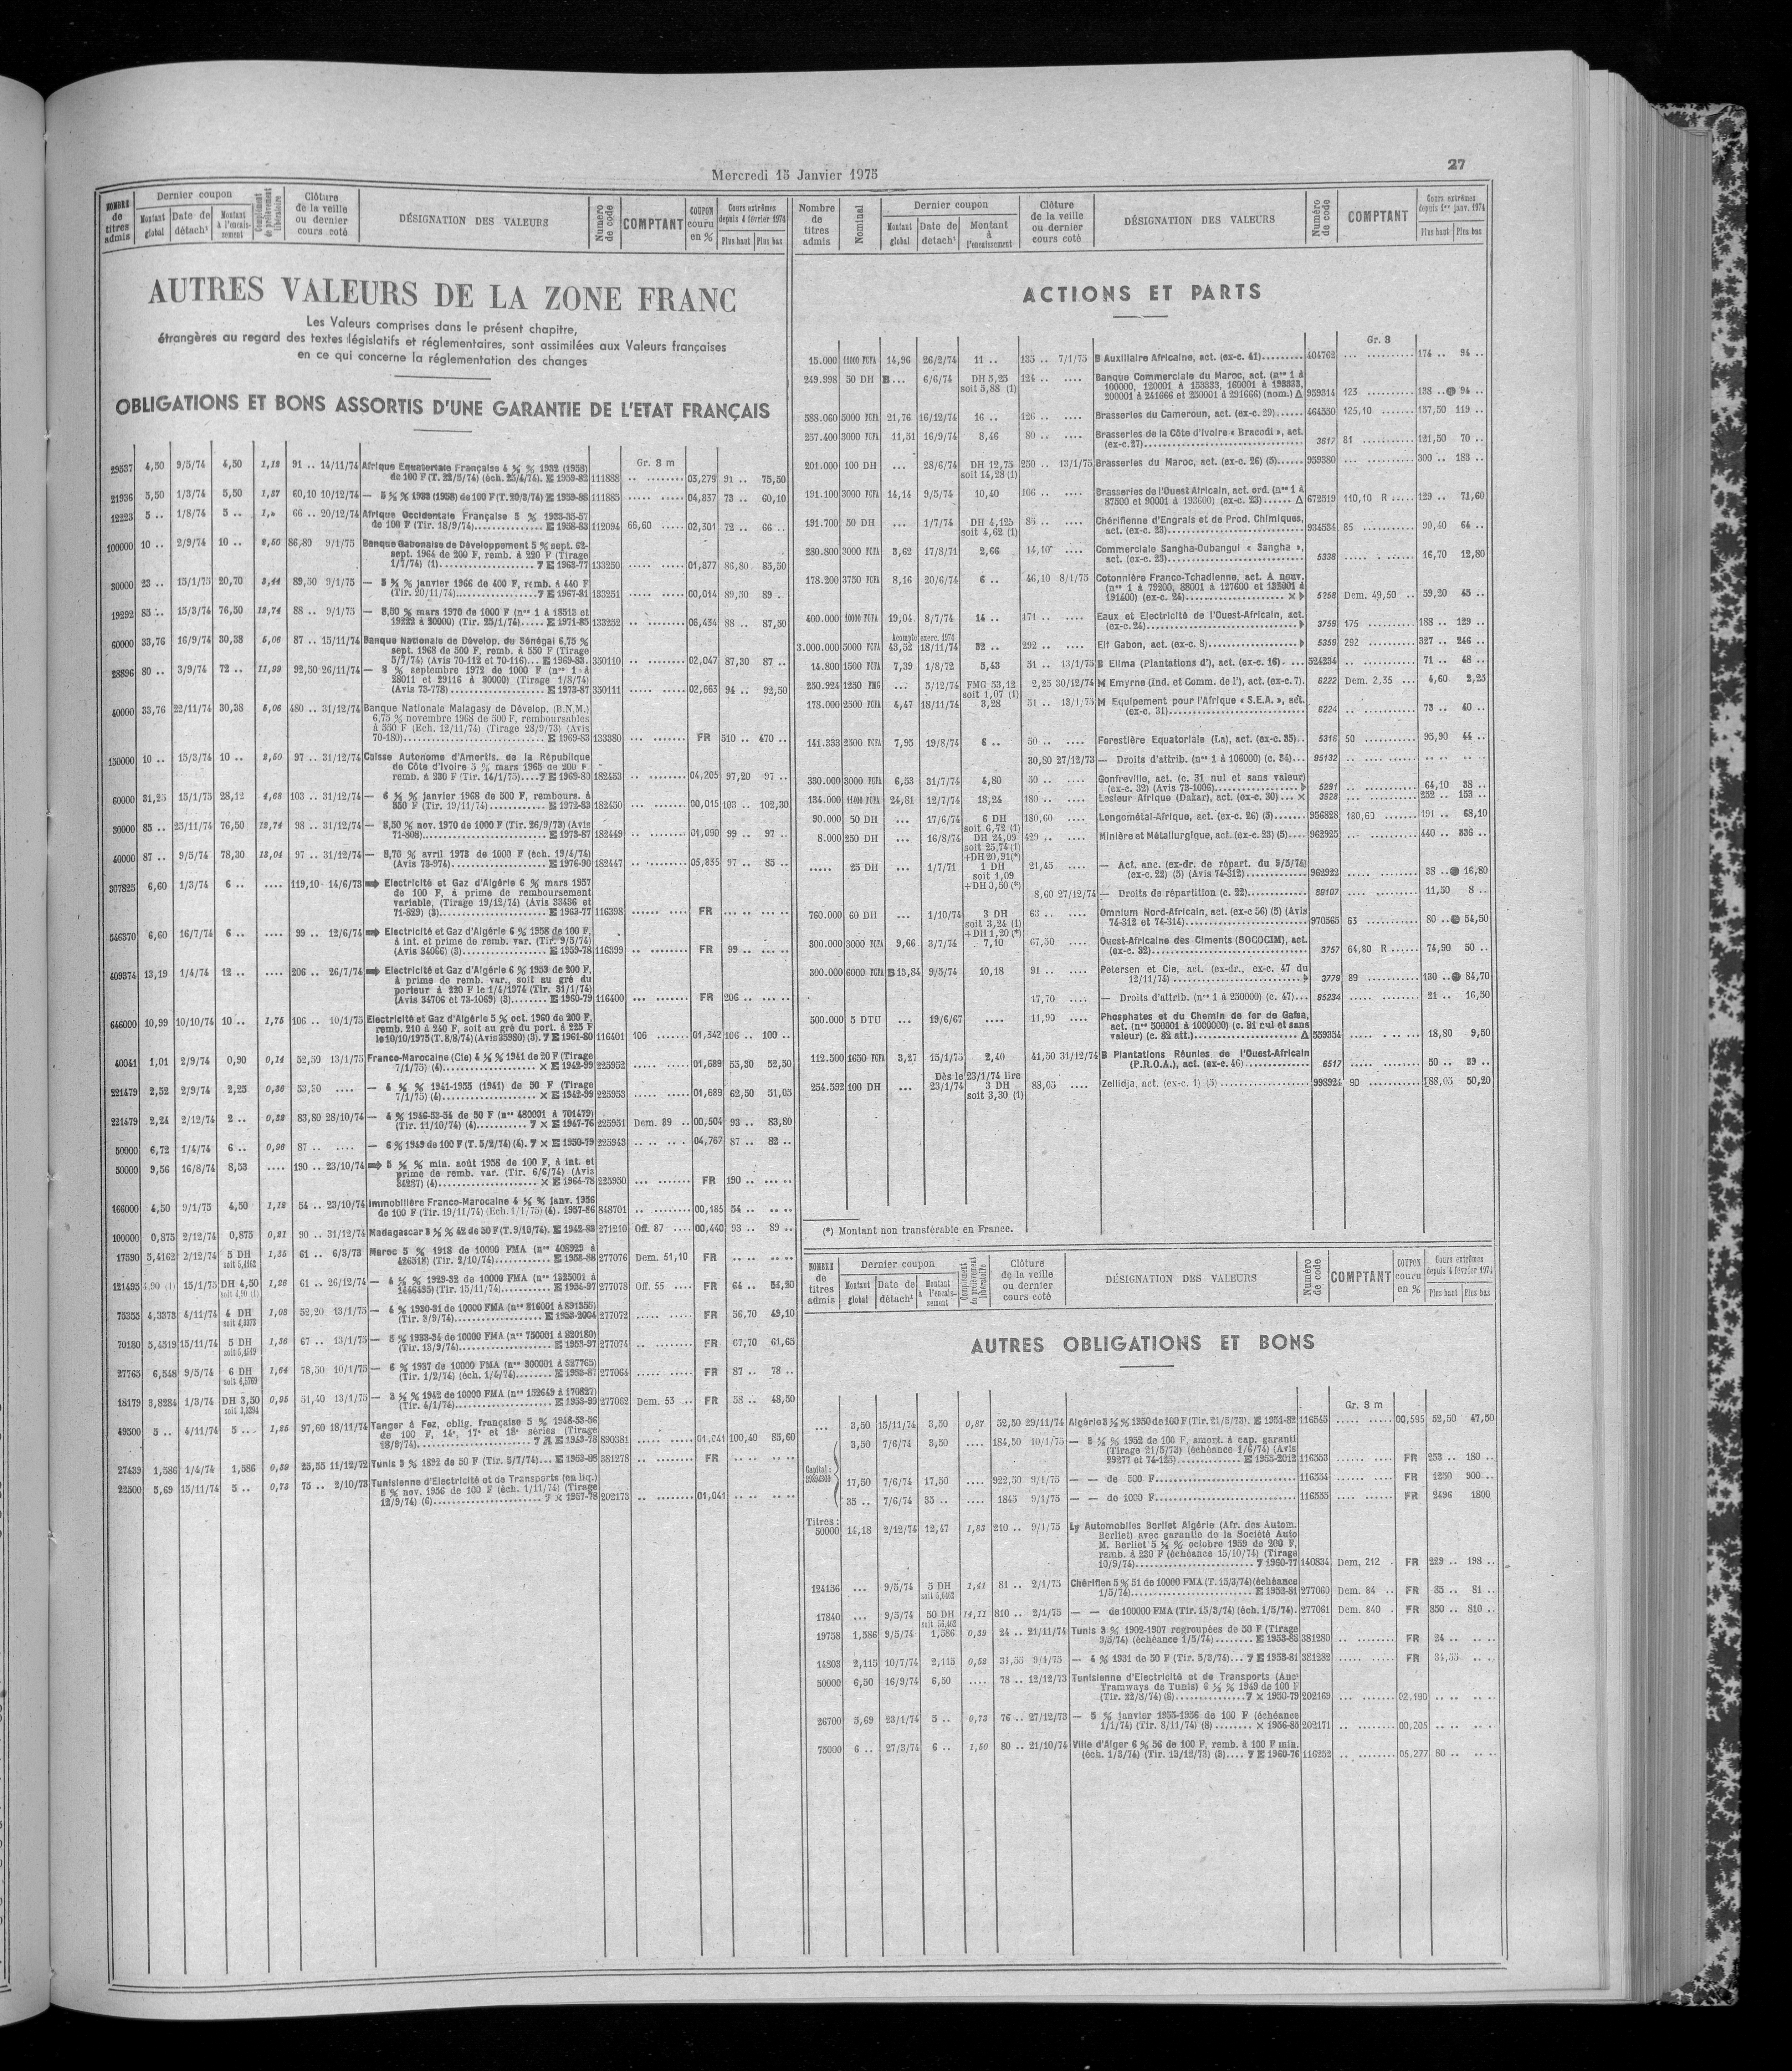 Mercredi 15 Janvier 1975
27
NOMBRE de titres admis
Dernier coupon
Montant global
Date de détach^t
Montant à l'encaissement
Complément de prélèvement libératoire
Clôture de la veille ou dernier cours coté
DÉSIGNATION DES VALEURS
Numéro de code
COMPTANT
COUPON couru en %
Cours extrêmes depuis 4 février 1974
Plus haut
Plus bas
AUTRES VALEURS DE LA ZONE FRANC
Les Valeurs comprises dans le présent chapitre,
étrangères au regard des textes législatifs et réglementaires, sont assimilées aux Valeurs françaises
en ce qui concerne la réglementation des changes
OBLIGATIONS ET BONS ASSORTIS D'UNE GARANTIE DE L'ETAT FRANÇAIS
Gr. 8 m
29537 4,50 9/5/74 4,50 1,12 91 .. 14/11/74 Afrique Equatoriale Française 4 ½ % 1932 (1958)
de 100 F (T. 22/5/74) (éch. 25/4/74). E 1959-82 111888 .. ........ 03,279 91 .. 75,50
21936 5,50 1/3/74 5,50 1,37 60,10 10/12/74 — 5 ½ % 1933 (1958) de 100 F (T. 20/3/74) E 1959-88 111885 ..... ..... 04,837 73 .. 60,10
12223 5 .. 1/8/74 5 .. 66 .. 20/12/74 Afrique Occidentale Française 5 % 1933-35-57
de 100 F (Tir. 18/9/74) E 1958-83 112094 66,60 ..... 02,301 72 .. 66 ..
100000 10 .. 2/9/74 10 .. 2,50 86,80 9/1/75 Banque Gabonaise de Développement 5 % sept. 62-
sept. 1964 de 200 F, remb. à 220 F (Tirage
1/7/74) (1) 7 E 1963-77 133250 ..... ..... 01,877 86,80 83,50
30000 23 .. 15/1/75 20,70 3,44 89,50 9/1/75 — 5 ¾ % janvier 1966 de 400 F, remb. à 440 F
(Tir. 20/11/74) 7 E 1967-81 133251 ..... ..... 00,014 89,50 89 ..
19292 85 .. 15/3/74 76,50 12,74 88 .. 9/1/75 — 8,50 % mars 1970 de 1000 F (n^os 1 à 18513 et
19222 à 20000) (Tir. 25/1/74) E 1971-85 133252 .. ........ 06,434 88 .. 87,50
60000 33,76 16/9/74 30,38 5,06 87 .. 15/11/74 Banque Nationale de Dévelop. du Sénégal 6,75 %
sept. 1968 de 500 F, remb. à 550 F (Tirage
5/7/74) (Avis 70-112 et 70-116) E 1969-83 350110 .. ........ 02,047 87,30 87 ..
28896 80 .. 3/9/74 72 .. 11,99 92,50 26/11/74 — 8 % septembre 1972 de 1000 F (n^os 1 à
28011 et 29116 à 30000) (Tirage 1/8/74)
(Avis 73-778) E 1973-87 350111 ..... ..... 02,663 94 .. 92,50
40000 33,76 22/11/74 30,38 5,06 480 .. 31/12/74 Banque Nationale Malagasy de Dévelop. (B.N.M.)
6,75 % novembre 1968 de 500 F, remboursables
à 550 F (Ech. 12/11/74) (Tirage 28/9/73) (Avis
70-180) E 1969-83 133380 ... ....... FR 510 .. 470 ..
150000 10 .. 15/3/74 10 .. 2,50 97 .. 31/12/74 Caisse Autonome d'Amortis. de la République
de Côte d'Ivoire 5 % mars 1965 de 200 F
remb. à 230 F (Tir. 14/1/75) 7 E 1969-80 182453 .. ........ 04,205 97,20 97 ..
60000 31,25 15/1/75 28,12 4,68 103 .. 31/12/74 — 6 ¼ % janvier 1968 de 500 F, rembours. à
550 F (Tir. 19/11/74) E 1972-83 182450 ... ....... 00,015 103 .. 102,30
30000 85 .. 25/11/74 76,50 12,74 98 .. 31/12/74 — 8,50 % nov. 1970 de 1000 F (Tir. 26/9/73) (Avis
71-808) E 1973-87 182449 .. ........ 01,090 99 .. 97 ..
40000 87 .. 9/5/74 78,30 13,04 97 .. 31/12/74 — 8,70 % avril 1973 de 1000 F (éch. 19/4/74)
(Avis 73-974) E 1976-90 182447 .. ........ 05,835 97 .. 85 ..
307825 6,60 1/3/74 6 .. .... 119,10 14/6/73 ➡ Electricité et Gaz d'Algérie 6 % mars 1957
de 100 F, à prime de remboursement
variable, (Tirage 19/12/74) (Avis 33436 et
71-829) (3) E 1963-77 116398 ...... .... FR ... .. ... ..
546370 6,60 16/7/74 6 .. .... 99 .. 12/6/74 ➡ Electricité et Gaz d'Algérie 6 % 1958 de 100 F,
à int. et prime de remb. var. (Tir. 9/5/74)
(Avis 34066) (3) E 1959-78 116399 .. ........ FR 99 .. ... ..
409374 13,19 1/4/74 12 .. .... 206 .. 26/7/74 ➡ Electricité et Gaz d'Algérie 6 % 1959 de 200 F,
à prime de remb. var., soit au gré du
porteur à 220 F le 1/4/1974 (Tir. 31/1/74)
(Avis 34706 et 73-1069) (3) E 1960-79 116400 ... ....... FR 206 .. ... ..
646000 10,99 10/10/74 10 .. 1,75 106 .. 10/1/75 Electricité et Gaz d'Algérie 5 % oct. 1960 de 200 F,
remb. 210 à 240 F, soit au gré du port. à 225 F
le 10/10/1975 (T. 8/8/74) (Avis 35980) (3). 7 E 1961-80 116401 106 ....... 01,342 106 .. 100 ..
40041 1,01 2/9/74 0,90 0,14 52,50 13/1/75 Franco-Marocaine (Cie) 4 ½ % 1941 de 20 F (Tirage
7/1/75) (4) × E 1942-99 225952 .... ...... 01,689 55,30 52,50
221479 2,52 2/9/74 2,25 0,36 53,50 .... — 4 ½ % 1941-1955 (1941) de 50 F (Tirage
7/1/75) (4) × E 1942-99 225953 ..... ..... 01,689 62,50 51,05
221479 2,24 2/12/74 2 .. 0,32 83,80 28/10/74 — 4 % 1946-53-54 de 50 F (n^os 480001 à 701479)
(Tir. 11/10/74) (4) 7 × E 1947-76 225951 Dem. 89 .. 00,504 93 .. 83,80
50000 6,72 1/4/74 6 .. 0,96 87 .. .... — 6 % 1949 de 100 F (T. 5/2/74) (4). 7 × E 1950-79 225943 .. ... .. 04,767 87 .. 82 ..
50000 9,56 16/8/74 8,53 .... 190 .. 23/10/74 ➡ 5 ½ % min. août 1958 de 100 F, à int. et
prime de remb. var. (Tir. 6/6/74) (Avis
34287) (4) × E 1964-78 225950 ... ....... FR 190 .. ... ..
166000 4,50 9/1/75 4,50 1,12 54 .. 23/10/74 Immobilière Franco-Marocaine 4 ½ % janv. 1956
de 100 F (Tir. 19/11/74) (Ech. 1/1/75) (4). 1957-86 848701 .. ........ 00,185 54 .. .. ..
100000 0,875 2/12/74 0,875 0,21 90 .. 31/12/74 Madagascar 3 ½ % 42 de 50 F (T. 9/10/74). E 1942-83 271210 Off. 87 .... 00,440 93 .. 89 ..
17590 5,4162 2/12/74 5 DH soit 5,4162 1,35 61 .. 6/3/73 Maroc 5 % 1918 de 10000 FMA (n^os 408929 à
426518) (Tir. 2/10/74) E 1958-88 277076 Dem. 51,10 FR .. .. .. ..
121495 4,90 (1) 15/1/75 DH 4,50 soit 4,90 (1) 1,26 61 .. 26/12/74 — 4 ½ % 1929-32 de 10000 FMA (n^os 1325001 à
1446495) (Tir. 15/11/74) E 1954-97 277078 Off. 55 .... FR 64 .. 54,20
75355 4,3373 4/11/74 4 DH soit 4,3373 1,08 52,20 13/1/75 — 4 % 1930-31 de 10000 FMA (n^os 816001 à 891355)
(Tir. 3/9/74) E 1953-2004 277072 ..... ..... FR 56,70 49,10
70180 5,4519 15/11/74 5 DH soit 5,4519 1,36 67 .. 13/1/75 — 5 % 1933-34 de 10000 FMA (n^os 750001 à 820180)
(Tir. 13/9/74) E 1953-97 277074 .. ........ FR 67,70 61,65
27765 6,548 9/5/74 6 DH soit 6,5769 1,64 78,50 10/1/75 — 6 % 1937 de 10000 FMA (n^os 300001 à 327765)
(Tir. 1/2/74) (éch. 1/4/74) E 1953-87 277064 ..... ..... FR 87 .. 78 ..
18179 3,8284 1/3/74 DH 3,50 0,95 51,40 13/1/75 — 3 ½ % 1942 de 10000 FMA (n^os 152649 à 170827)
(Tir. 4/1/74) E 1953-99 277062 Dem. 53 .. FR 58 .. 48,50
49500 5 .. 4/11/74 5 .. 1,25 97,60 18/11/74 Tanger à Fez, oblig. française 5 % 1948-53-56
de 100 F, 14^e, 17^e et 18^e séries (Tirage
18/9/74) E 1949-78 890381 ..... ..... 01,041 100,40 85,60
27439 1,586 1/4/74 1,586 0,39 25,55 11/12/72 Tunis 3 % 1892 de 50 F (Tir. 5/7/74) E 1953-88 381278 .. ........ FR .. .. .. ..
22500 5,69 15/11/74 5 .. 0,73 75 .. 2/10/73 Tunisienne d'Electricité et de Transports (en liq.)
5 % nov. 1956 de 100 F (éch. 1/11/74) (Tirage
12/9/74) (6) 7 × 1957-78 202173 .. ........ 01,041 .. .. .. ..
Nombre de titres admis
Nominal
Dernier coupon
Montant global
Date de détach^t
Montant à l'encaissement
Clôture de la veille ou dernier cours coté
DÉSIGNATION DES VALEURS
Numéro de code
COMPTANT
Cours extrêmes depuis 1^er janv. 1974
Plus haut
Plus bas
ACTIONS ET PARTS
Gr. 8
15.000 11000 FCFA 14,96 26/2/74 11 .. 135 .. 7/1/75 B Auxiliaire Africaine, act. (ex-c. 41) 404762 ... .......... 174 .. 94 ..
249.998 50 DH B ... 6/6/74 DH 5,25 soit 5,88 (1) 124 .. .... Banque Commerciale du Maroc, act. (n^os 1 à
100000, 120001 à 153333, 160001 à 193333,
200001 à 241666 et 250001 à 291666) (nom.) Δ 959314 123 .......... 138 .. ● 94 ..
588.060 5000 FCFA 21,76 16/12/74 16 .. 126 .. .... Brasseries du Cameroun, act. (ex-c. 29) 464550 125,10 ....... 157,50 119 ..
257.400 3000 FCFA 11,51 16/9/74 8,46 80 .. .... Brasseries de la Côte d'Ivoire « Bracodi », act.
(ex-c. 27) 3617 81 ........... 121,50 70 ..
201.000 100 DH ... 28/6/74 DH 12,75 soit 14,28 (1) 250 .. 13/1/75 Brasseries du Maroc, act. (ex-c. 26) (5) 959380 ... .......... 300 .. 183 ..
191.100 3000 FCFA 14,14 9/5/74 10,40 106 .. .... Brasseries de l'Ouest Africain, act. ord. (n^os 1 à
87500 et 90001 à 193600) (ex-c. 23) Δ 672519 110,10 R ..... 129 .. 71,60
191.700 50 DH ... 1/7/74 DH 4,125 soit 4,62 (1) 85 .. .... Chérifienne d'Engrais et de Prod. Chimiques,
act. (ex-c. 23) 934534 85 ........... 90,40 64 ..
280.800 3000 FCFA 3,62 17/8/71 2,66 14,10 .... Commerciale Sangha-Oubangui « Sangha »,
act. (ex-c. 23) 5338 ..... . ...... 16,70 12,80
178.200 3750 FCFA 8,16 20/6/74 6 .. 46,10 8/1/75 Cotonnière Franco-Tchadienne, act. A nouv.
(n^os 1 à 79200, 88001 à 127600 et 132001 à
191400) (ex-c. 24) × 5258 Dem. 49,50 .. 59,20 45 ..
400.000 10000 FCFA 19,04 8/7/74 14 .. 171 .. .... Eaux et Electricité de l'Ouest-Africain, act.
(ex-c. 24) 3759 175 .......... 188 .. 129 ..
Acompte exerc. 1974
3.000.000 5000 FCFA 43,52 18/11/74 32 .. 292 .. .... Elf Gabon, act. (ex-c. 8) 5359 292 .......... 327 .. 246 ..
14.800 1500 FCFA 7,39 1/8/72 5,43 51 .. 13/1/75 B Elima (Plantations d'), act. (ex-c. 16) 524234 .. ........... 71 .. 48 ..
250.924 1250 FMG ... 5/12/74 FMG 53,12 soit 1,07 (1) 2,25 30/12/74 M Emyrne (Ind. et Comm. de l'), act. (ex-c. 7). 6222 Dem. 2,35 ... 4,60 2,25
178.000 2500 FCFA 4,47 18/11/74 3,28 51 .. 13/1/75 M Equipement pour l'Afrique « S.E.A. », act.
(ex-c. 31) 6224 .. ........... 73 .. 40 ..
141.333 2500 FCFA 7,95 19/8/74 6 .. 50 .. .... Forestière Equatoriale (La), act. (ex-c. 35) 5316 50 ........... 95,90 44 ..
30,80 27/12/73 — Droits d'attrib. (n^os 1 à 106000) (c. 34) 95132 .. ........... .. .. .. ..
330.000 3000 FCFA 6,53 31/7/74 4,80 50 .. .... Gonfreville, act. (c. 31 nul et sans valeur)
(ex-c. 32) (Avis 73-1006) 5291 .. ........... 64,10 38 ..
134.000 11400 FCFA 24,81 12/7/74 18,24 180 .. .... Lesieur Afrique (Dakar), act. (ex-c. 30) × 3828 ... .......... 252 .. 153 ..
90.000 50 DH ... 17/6/74 6 DH soit 6,72 (1) 180,60 .... Longométal-Afrique, act. (ex-c. 26) (5) 956828 180,60 ....... 191 .. 68,10
8.000 250 DH ... 16/8/74 DH 24,09 soit 25,74 (1) +DH 20,91(*) 429 .. .... Minière et Métallurgique, act. (ex-c. 23) (5) 962925 .. ........... 440 .. 336 ..
..... 25 DH ... 1/7/71 1 DH soit 1,09 +DH 0,50 (*) 21,45 .... — Act. anc. (ex-dr. de répart. du 9/5/74)
(ex-c. 22) (5) (Avis 74-312) 962922 ..... ........ 38 .. ● 16,80
8,60 27/12/74 — Droits de répartition (c. 22) 99107 .... ......... 11,50 8 ..
760.000 60 DH ... 1/10/74 3 DH soit 3,24 (1) +DH 1,20 (*) 63 .. .... Omnium Nord-Africain, act. (ex-c 56) (5) (Avis
74-312 et 74-314) 970565 63 ........... 80 .. ● 54,50
300.000 3000 FCFA 9,66 3/7/74 7,10 67,50 .... Ouest-Africaine des Ciments (SOCOCIM), act.
(ex-c. 32) 3757 64,80 R ...... 74,90 50 ..
300.000 6000 FCFA B 13,84 9/5/74 10,18 91 .. .... Petersen et Cie, act. (ex-dr., ex-c. 47 du
12/11/74) 3779 89 ........... 130 .. ● 84,70
17,70 .... — Droits d'attrib. (n^os 1 à 250000) (c. 47) 95234 ..... ........ 21 .. 16,50
500.000 5 DTU ... 19/6/67 .... 11,90 .... Phosphates et du Chemin de fer de Gafsa,
act. (n^os 500001 à 1000000) (c. 81 nul et sans
valeur) (c. 82 att.) Δ 559354 ..... .. ... .. 18,80 9,50
112.500 1650 FCFA 3,27 15/1/75 2,40 41,50 31/12/74 B Plantations Réunies de l'Ouest-Africain
(P.R.O.A.), act. (ex-c. 46) 6517 ..... ........ 50 .. 39 ..
Dès le 23/1/74 lire
254.592 100 DH ... 23/1/74 3 DH soit 3,30 (1) 88,05 .... Zellidja, act. (ex-c. 1) (5) 998924 90 ........... 188,05 50,20
(*) Montant non transférable en France.
NOMBRE de titres admis
Dernier coupon
Montant global
Date de détach^t
Montant à l'encaissement
Complément de prélèvement libératoire
Clôture de la veille ou dernier cours coté
DÉSIGNATION DES VALEURS
Numéro de code
COMPTANT
COUPON couru en %
Cours extrêmes depuis 4 février 1974
Plus haut
Plus bas
AUTRES OBLIGATIONS ET BONS
Gr. 8 m
... 3,50 15/11/74 3,50 0,87 52,50 29/11/74 Algérie 3 ½ % 1950 de 100 F (Tir. 21/5/73). E 1951-82 116545 ..... ..... 00,595 52,50 47,50
Capital :
3,50 7/6/74 3,50 .... 184,50 10/1/75 — 3 ½ % 1952 de 100 F, amort. à cap. garanti
(Tirage 21/5/73) (échéance 1/6/74) (Avis
29277 et 74-123) E 1953-2012 116553 .. ........ FR 253 .. 180 ..
17,50 7/6/74 17,50 .... 922,50 9/1/75 — — de 500 F 116554 .... ...... FR 1250 900 ..
35 .. 7/6/74 35 .. .... 1845 9/1/75 — — de 1000 F 116555 .... ...... FR 2496 1800
Titres :
50000 14,18 2/12/74 12,47 1,83 210 .. 9/1/75 Ly Automobiles Berliet Algérie (Afr. des Autom.
Berliet) avec garantie de la Société Auto
M. Berliet 5 ¾ % octobre 1959 de 200 F,
remb. à 230 F (échéance 15/10/74) (Tirage
10/9/74) 7 1960-77 140834 Dem. 212 . FR 229 .. 198 ..
124136 ... 9/5/74 5 DH soit 5,6462 1,41 81 .. 2/1/75 Chérifien 5 % 51 de 10000 FMA (T. 15/3/74) (échéance
1/5/74) E 1952-81 277060 Dem. 84 .. FR 85 .. 81 ..
17840 ... 9/5/74 50 DH soit 56,462 14,11 810 .. 2/1/75 — — de 100000 FMA (Tir. 15/3/74) (éch. 1/5/74). 277061 Dem. 840 . FR 850 .. 810 ..
19758 1,586 9/5/74 1,586 0,39 24 .. 21/11/74 Tunis 3 % 1902-1907 regroupées de 50 F (Tirage
3/5/74) (échéance 1/5/74) E 1953-88 381280 .. ........ FR 24 .. .. ..
14803 2,115 10/7/74 2,115 0,52 31,55 9/1/75 — 4 % 1931 de 50 F (Tir. 5/3/74) 7 E 1953-81 381282 ..... ..... FR 31,55 .. ..
50000 6,50 16/9/74 6,50 .... 78 .. 12/12/73 Tunisienne d'Electricité et de Transports (Anc^t
Tramways de Tunis) 6 ½ % 1949 de 100 F
(Tir. 22/8/74) (8) 7 × 1950-79 202169 ... ....... 02,190 .. .. .. ..
26700 5,69 23/1/74 5 .. 0,73 76 .. 27/12/73 — 5 % janvier 1955-1956 de 100 F (échéance
1/1/74) (Tir. 8/11/74) (8) × 1956-85 202171 .. ........ 00,205 .. .. .. ..
75000 6 .. 27/3/74 6 .. 1,50 80 .. 21/10/74 Ville d'Alger 6 % 56 de 100 F, remb. à 100 F min.
(éch. 1/3/74) (Tir. 13/12/73) (3) 7 E 1960-76 116252 .. ........ 05,277 80 .. .. ..